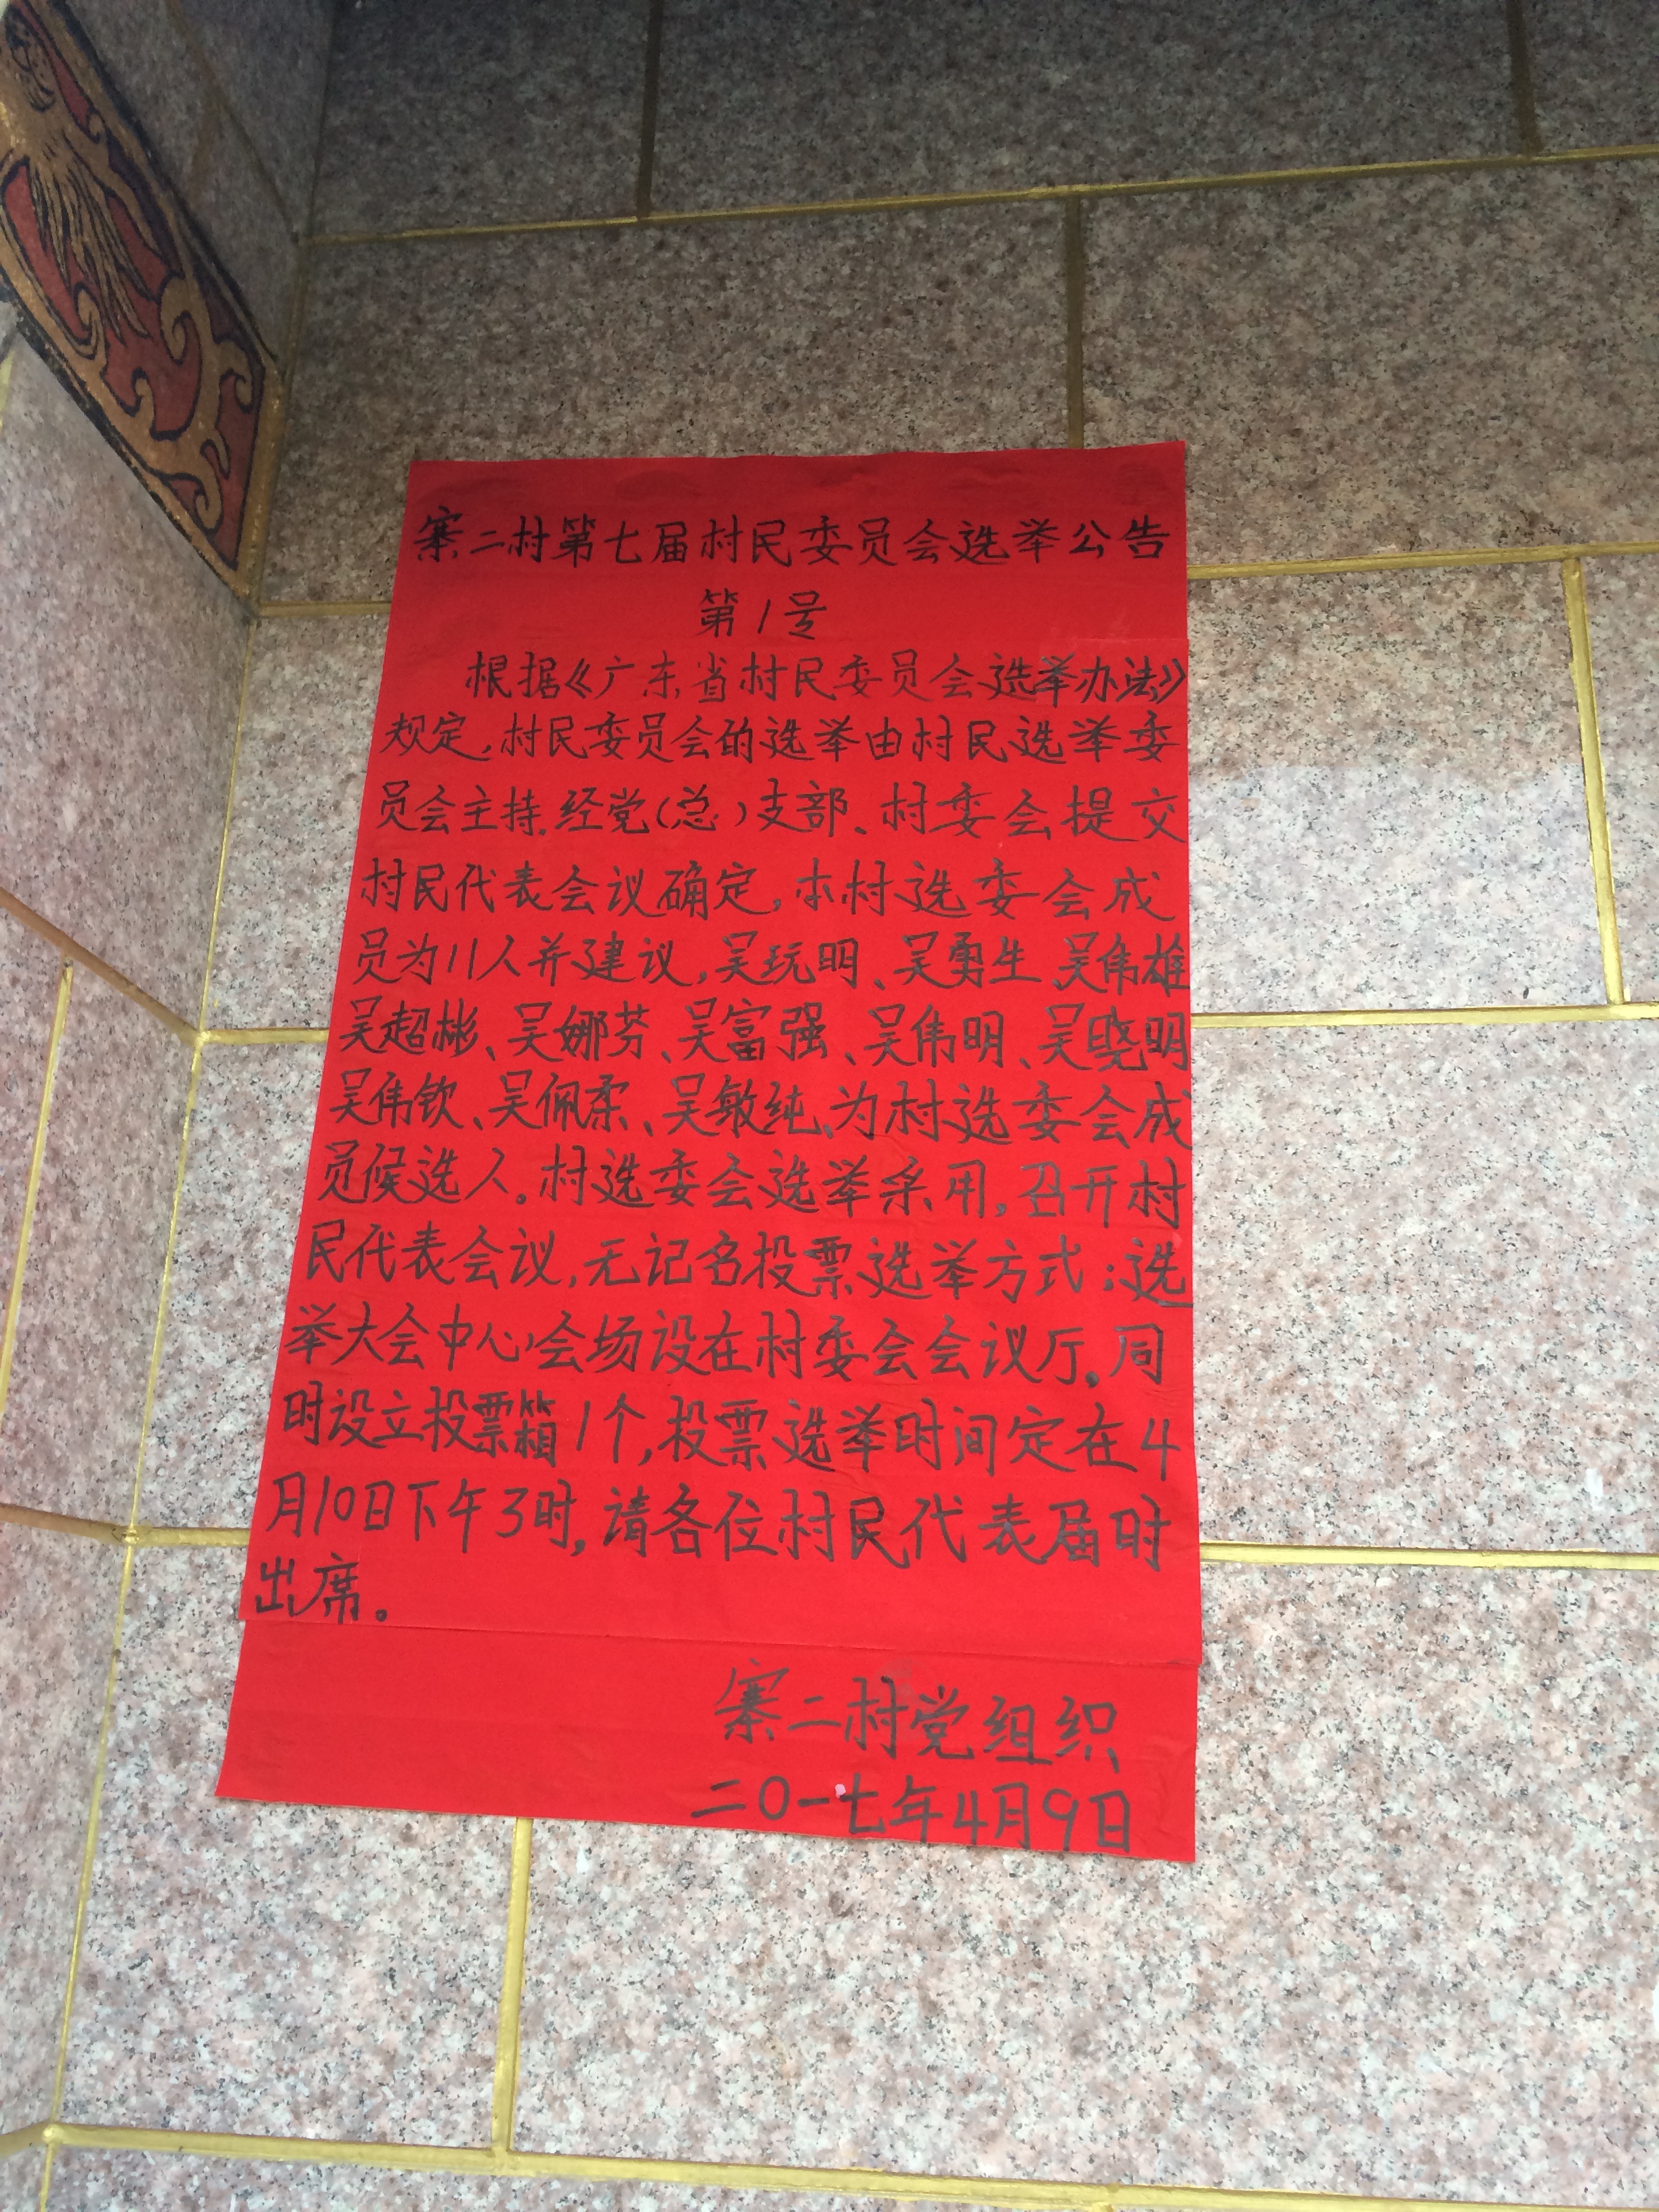 寨二村第七届村民委员会选举公告
第1号
根据《广东省村民委员会选举办法》
规定,村民委员会的选举由村民选举委
员会主持.经党(总)支部、村委会提交
村民代表会议确定,本村选委会成
员为11人并建议,吴玩明、吴勇生、吴伟雄
吴超彬、吴娜芬、吴富强、吴伟明、吴晓明
吴伟钦、吴佩柔、吴敏纯、为村选委会成
员候选人。村选委会选举采用,召开村
民代表会议,无记名投票选举方式:选
举大会中心会场设在村委会会议厅。同
时设立投票箱1个,投票选举时间定在4
月10日下午3时,请各位村民代表届时
出席。
寨二村党组织
二〇一七年4月9日